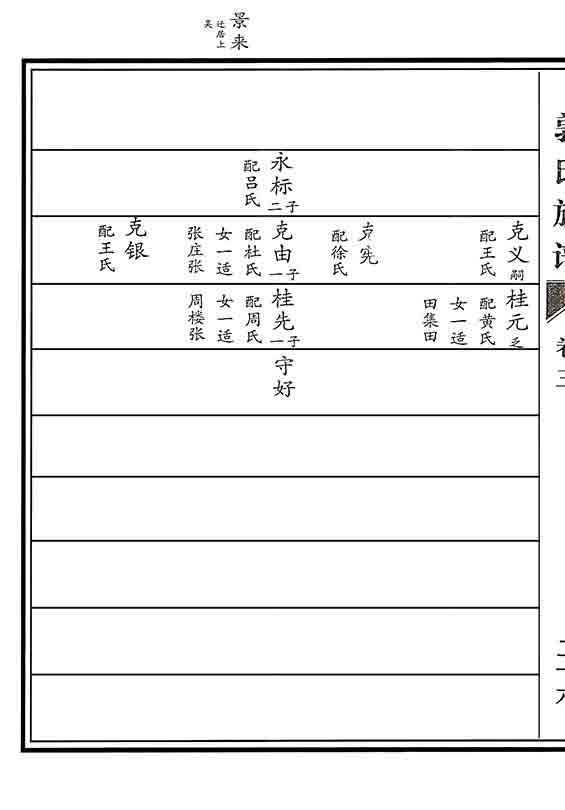 景来
迁居上
吴
郭氏族谱
卷三
永标
二子
配吕氏
克义
嗣
配王氏
克宪
配徐氏
克由
一子
配杜氏
女一适
张庄张
克银
配王氏
桂元
乏
配黄氏
女一适
田集田
桂先
一子
配周氏
女一适
周楼张
守好